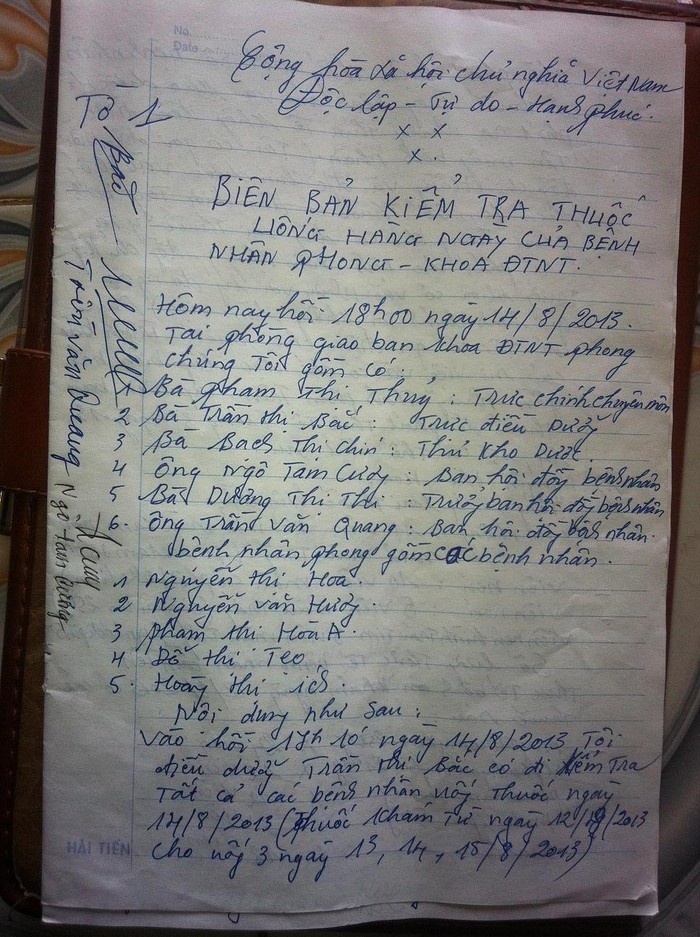 No.
Date
Cộng hòa xã hội chủ nghĩa Việt Nam
Độc lập - Tự do - Hạnh phúc.
x x
x.
Tờ 1
BIÊN BẢN KIỂM TRA THUỐC
UỐNG HÀNG NGÀY CỦA BỆNH
NHÂN PHONG - KHOA ĐTNT.
Hôm nay hồi 18h00 ngày 14/8/2013.
Tại phòng giao ban khoa ĐTNT phong
chúng tôi gồm có:
1 Bà Phạm Thị Thuỷ: Trực chính chuyên môn
2 Bà Trần Thị Bắc: Trực điều dưỡng
3 Bà Bạch Thị Chín: Thủ kho Dược.
4 Ông Ngô Tam Cương: Ban hội đồng bệnh nhân
5 Bà Dương Thị Thi: Trưởng ban hội đồng bệnh nhân
6. Ông Trần Văn Quang: Ban hội đồng bệnh nhân.
bệnh nhân phong gồm các bệnh nhân.
1 Nguyễn Thị Hoa.
2 Nguyễn Văn Hướng.
3 Phạm Thị Hoà A.
4 Đỗ Thị Tẹo
5. Hoàng Thị Ích.
Nội dung như sau:
Vào hồi 17h 10' ngày 14/8/2013 Tôi
điều dưỡng Trần Thị Bắc có đi kiểm tra
Tất cả các bệnh nhân uống thuốc ngày
14/8/2013 (Thuốc khám từ ngày 12/8/2013
cho uống 3 ngày 13, 14, 15/8/2013)
Bắc
Trần Văn Quang
Ngô Tam Cương
HẢI TIẾN